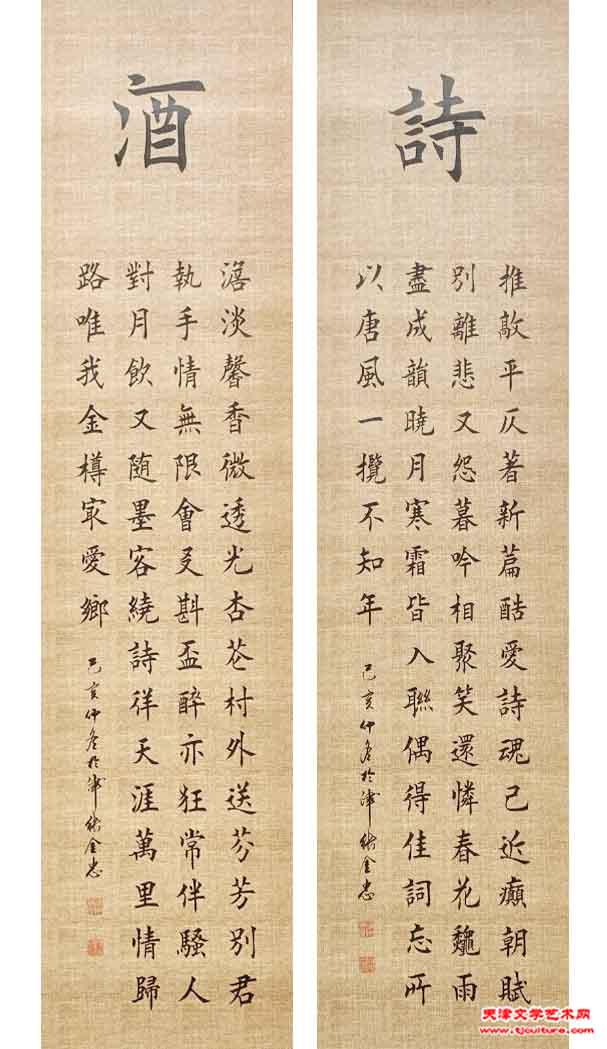 詩
推敲平仄著新篇酷愛詩魂己近癲朝賦
別離悲又怨暮吟相聚笑還憐春花龝雨
盡成韻曉月寒霜皆入聯偶得佳詞忘所
以唐風一攬不知年
己亥仲冬於津金忠
酒
淡馨香微透光杏花村外送芬芳別君
執手情無限會友斟盃醉亦狂常伴騷人
對月飲又随墨客繞詩徉天涯萬里情歸
路唯我金樽冣愛鄉
己亥仲冬於津金忠
天津文学艺术网
www.tjculture.com